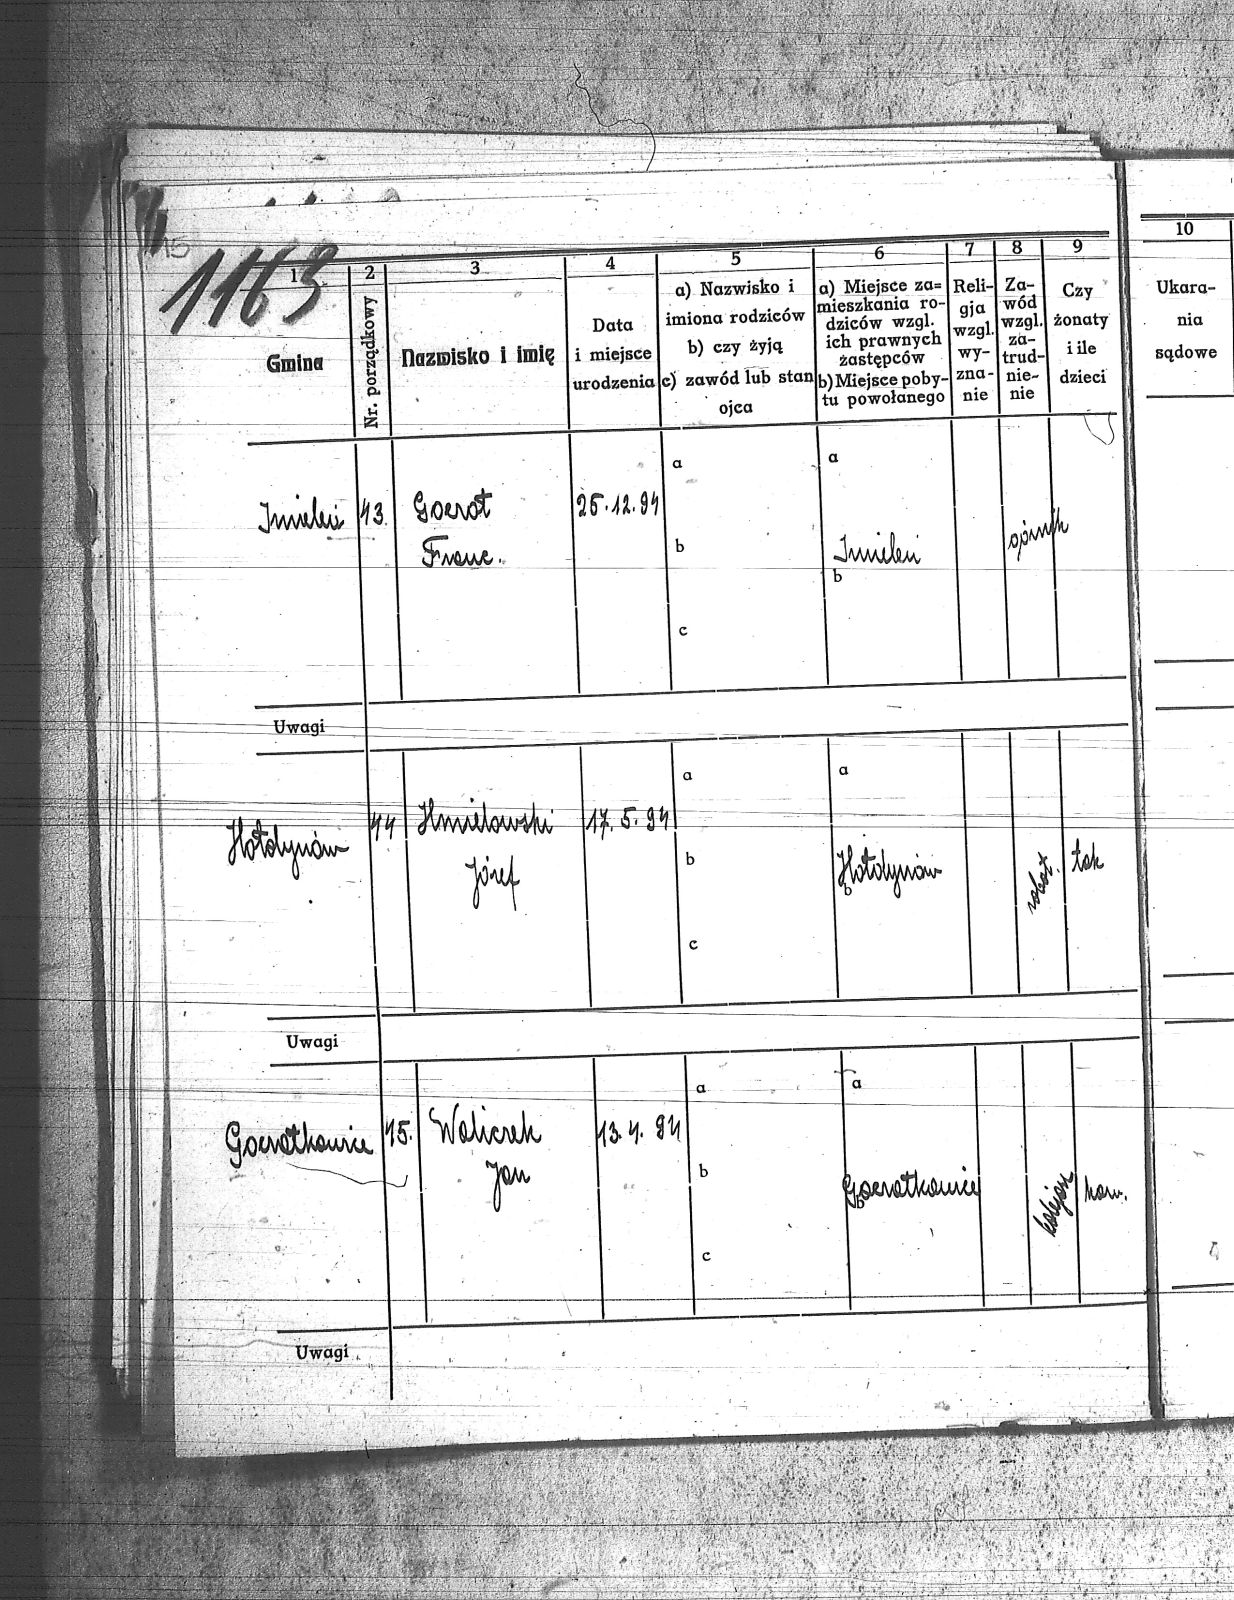 1163
15
1
2
3
4
5
6
7
8
9
10
Gmina
Nr. porządkowy
Nazwisko i imię
Data
i miejsce
urodzenia
a) Nazwisko i
imiona rodziców
b) czy żyją
c) zawód lub stan
ojca
a) Miejsce za=
mieszkania ro-
dziców wzgl.
ich prawnych
żastępców
b) Miejsce poby-
tu powołanego
Reli-
gja
wzgl.
wy-
zna-
nie
Za-
wód
wzgl.
za-
trud-
nie-
nie
Czy
żonaty
i ile
dzieci
Ukara-
nia
sądowe
Imieleń 43. Goerot 26.12.94 a a
Franc. b Imieleń górnik
b
c
Uwagi
Hołdynów 44 Hmielowski 17.5.94 a a
Józef b Hołdynów robot. tak
b
c
Uwagi
Goczałkowice 45. Waliczek 13.4.94 a a
Jan b Goczałkowice kolejarz kaw.
b
c
Uwagi